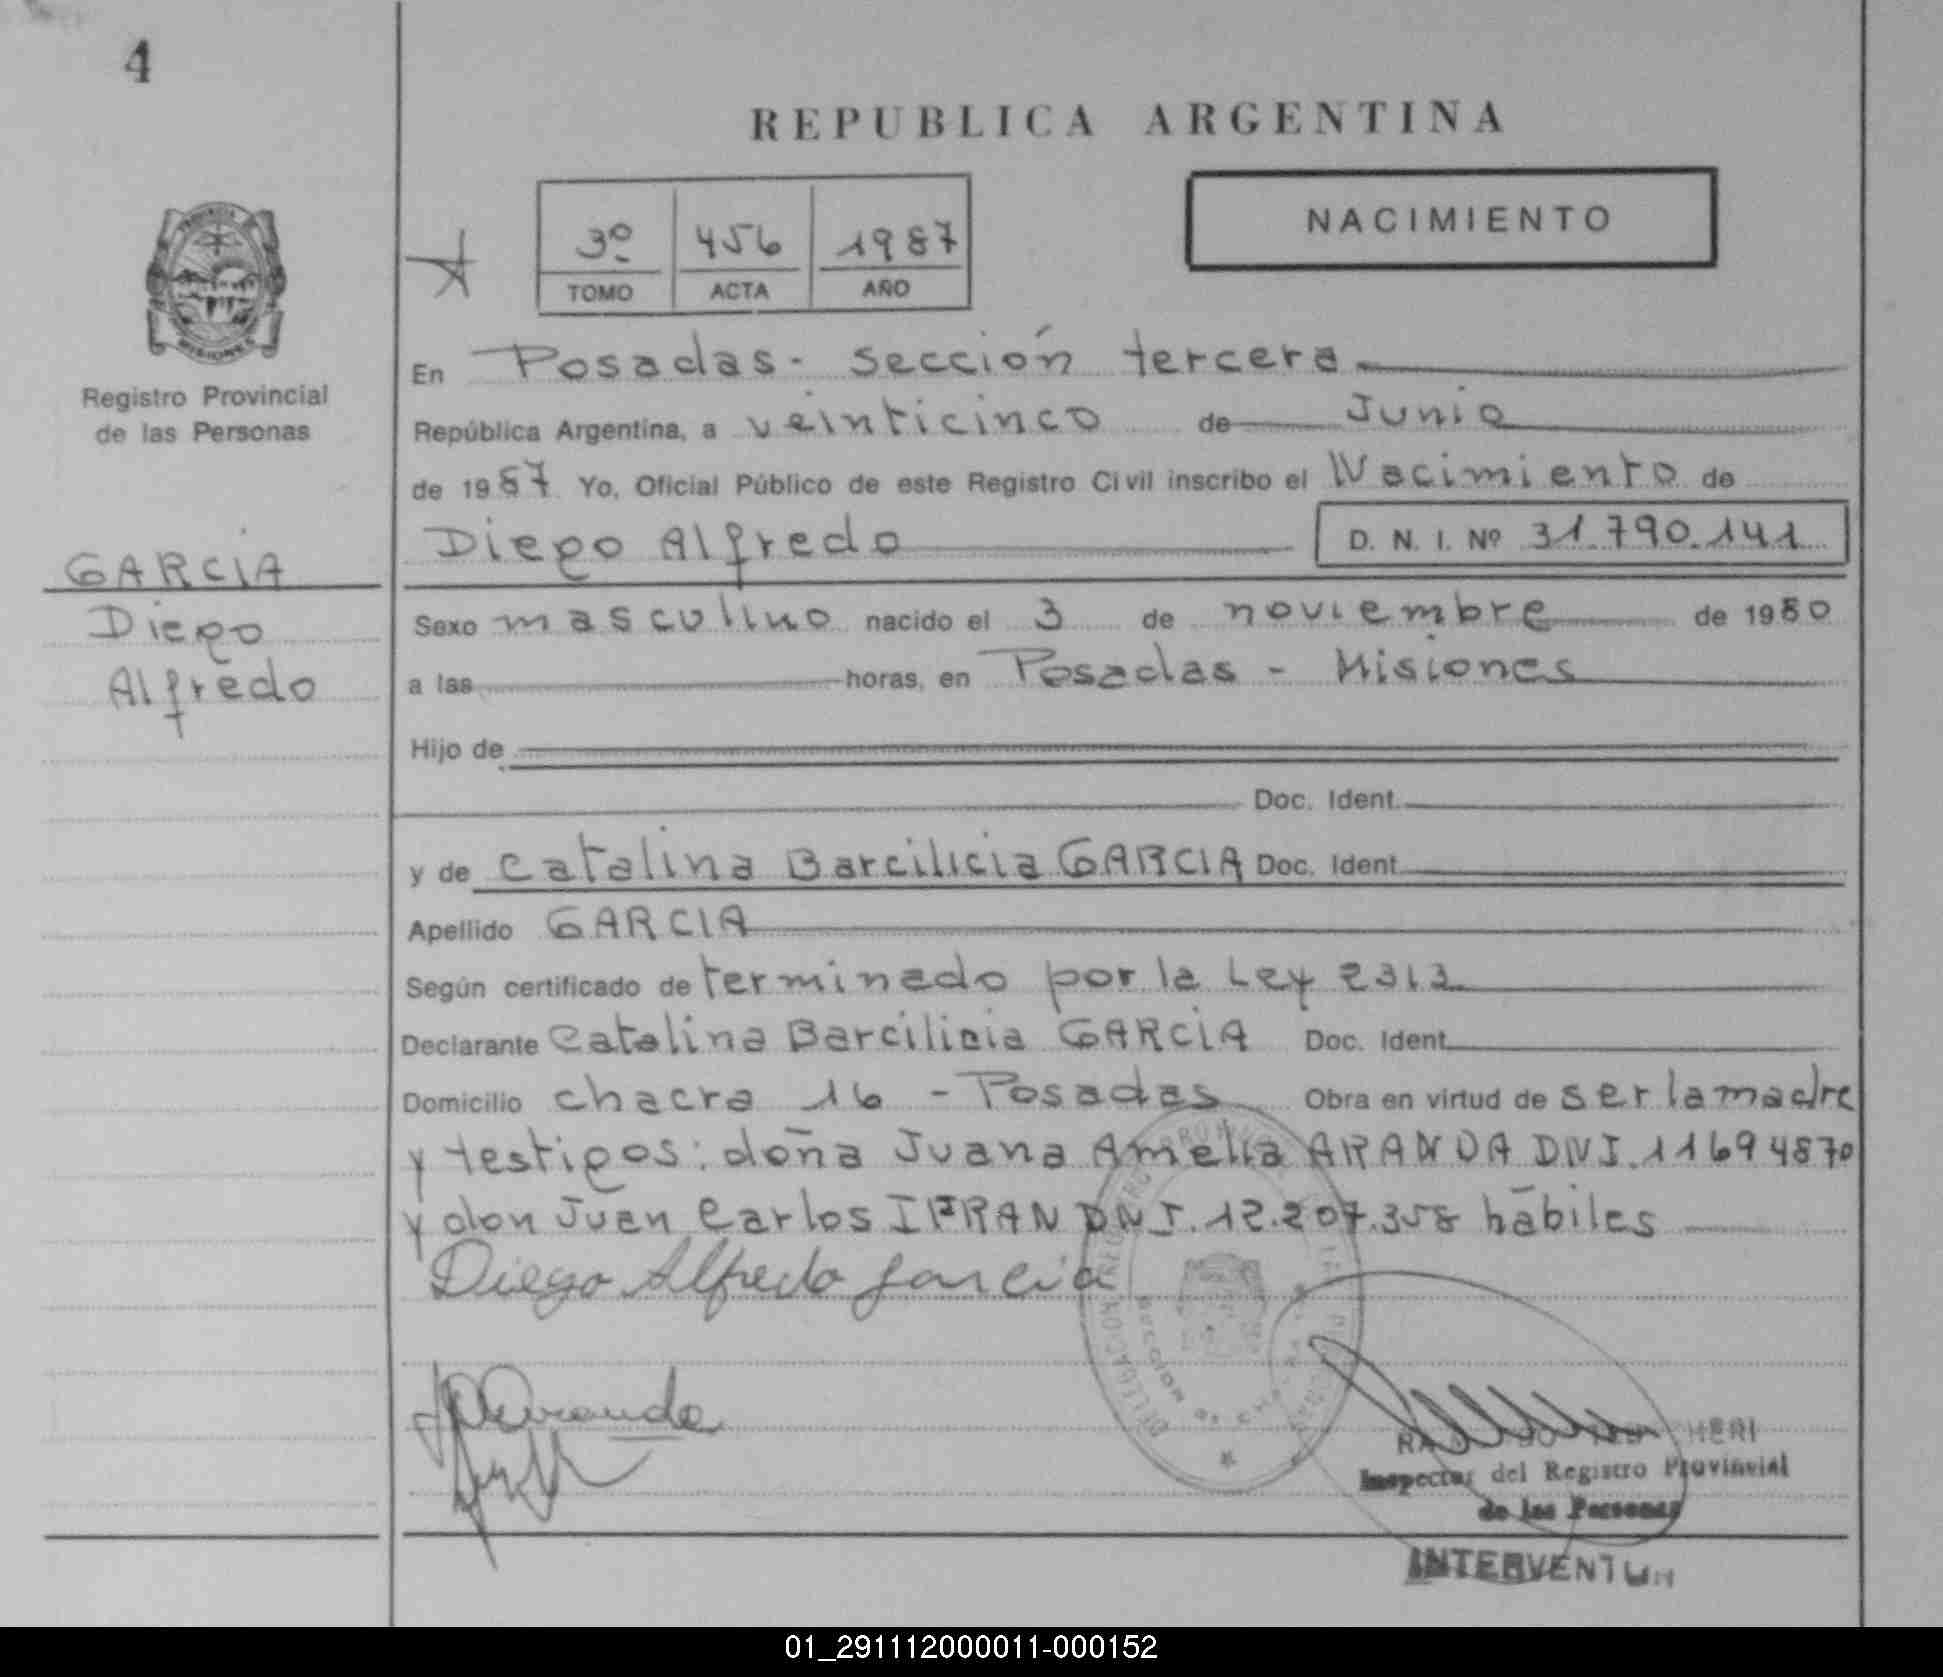 4
REPUBLICA ARGENTINA
NACIMIENTO
3º 456 1987
TOMO ACTA AÑO
PROVINCIA
MISIONES
Registro Provincial
de las Personas
GARCIA
Diego
Alfredo
En Posadas - sección tercera
República Argentina, a veinticinco de Junio
de 1987 Yo, Oficial Público de este Registro Civil inscribo el Nacimiento de
Diego Alfredo D. N. I. Nº 31.790.141
Sexo masculino nacido el 3 de noviembre de 1980
a las horas, en Posadas - Misiones
Hijo de
Doc. Ident.
y de Catalina Barcilicia GARCIA Doc. Ident.
Apellido GARCIA
Según certificado de terminado por la Ley 2313
Declarante Catalina Barcilicia GARCIA Doc. Ident.
Domicilio chacra 16 - Posadas Obra en virtud de ser la madre
y testigos: doña Juana Amelia ARANDA DNI. 11694870
y don Juan Carlos IFRAN DNI. 12.207.358 hábiles
Diego Alfredo Garcia
Aranda
DELEGACION REGISTRO PROVINCIAL
SECCION
Inspector del Registro Provincial
de las Personas
INTERVENTOR
01_291112000011-000152